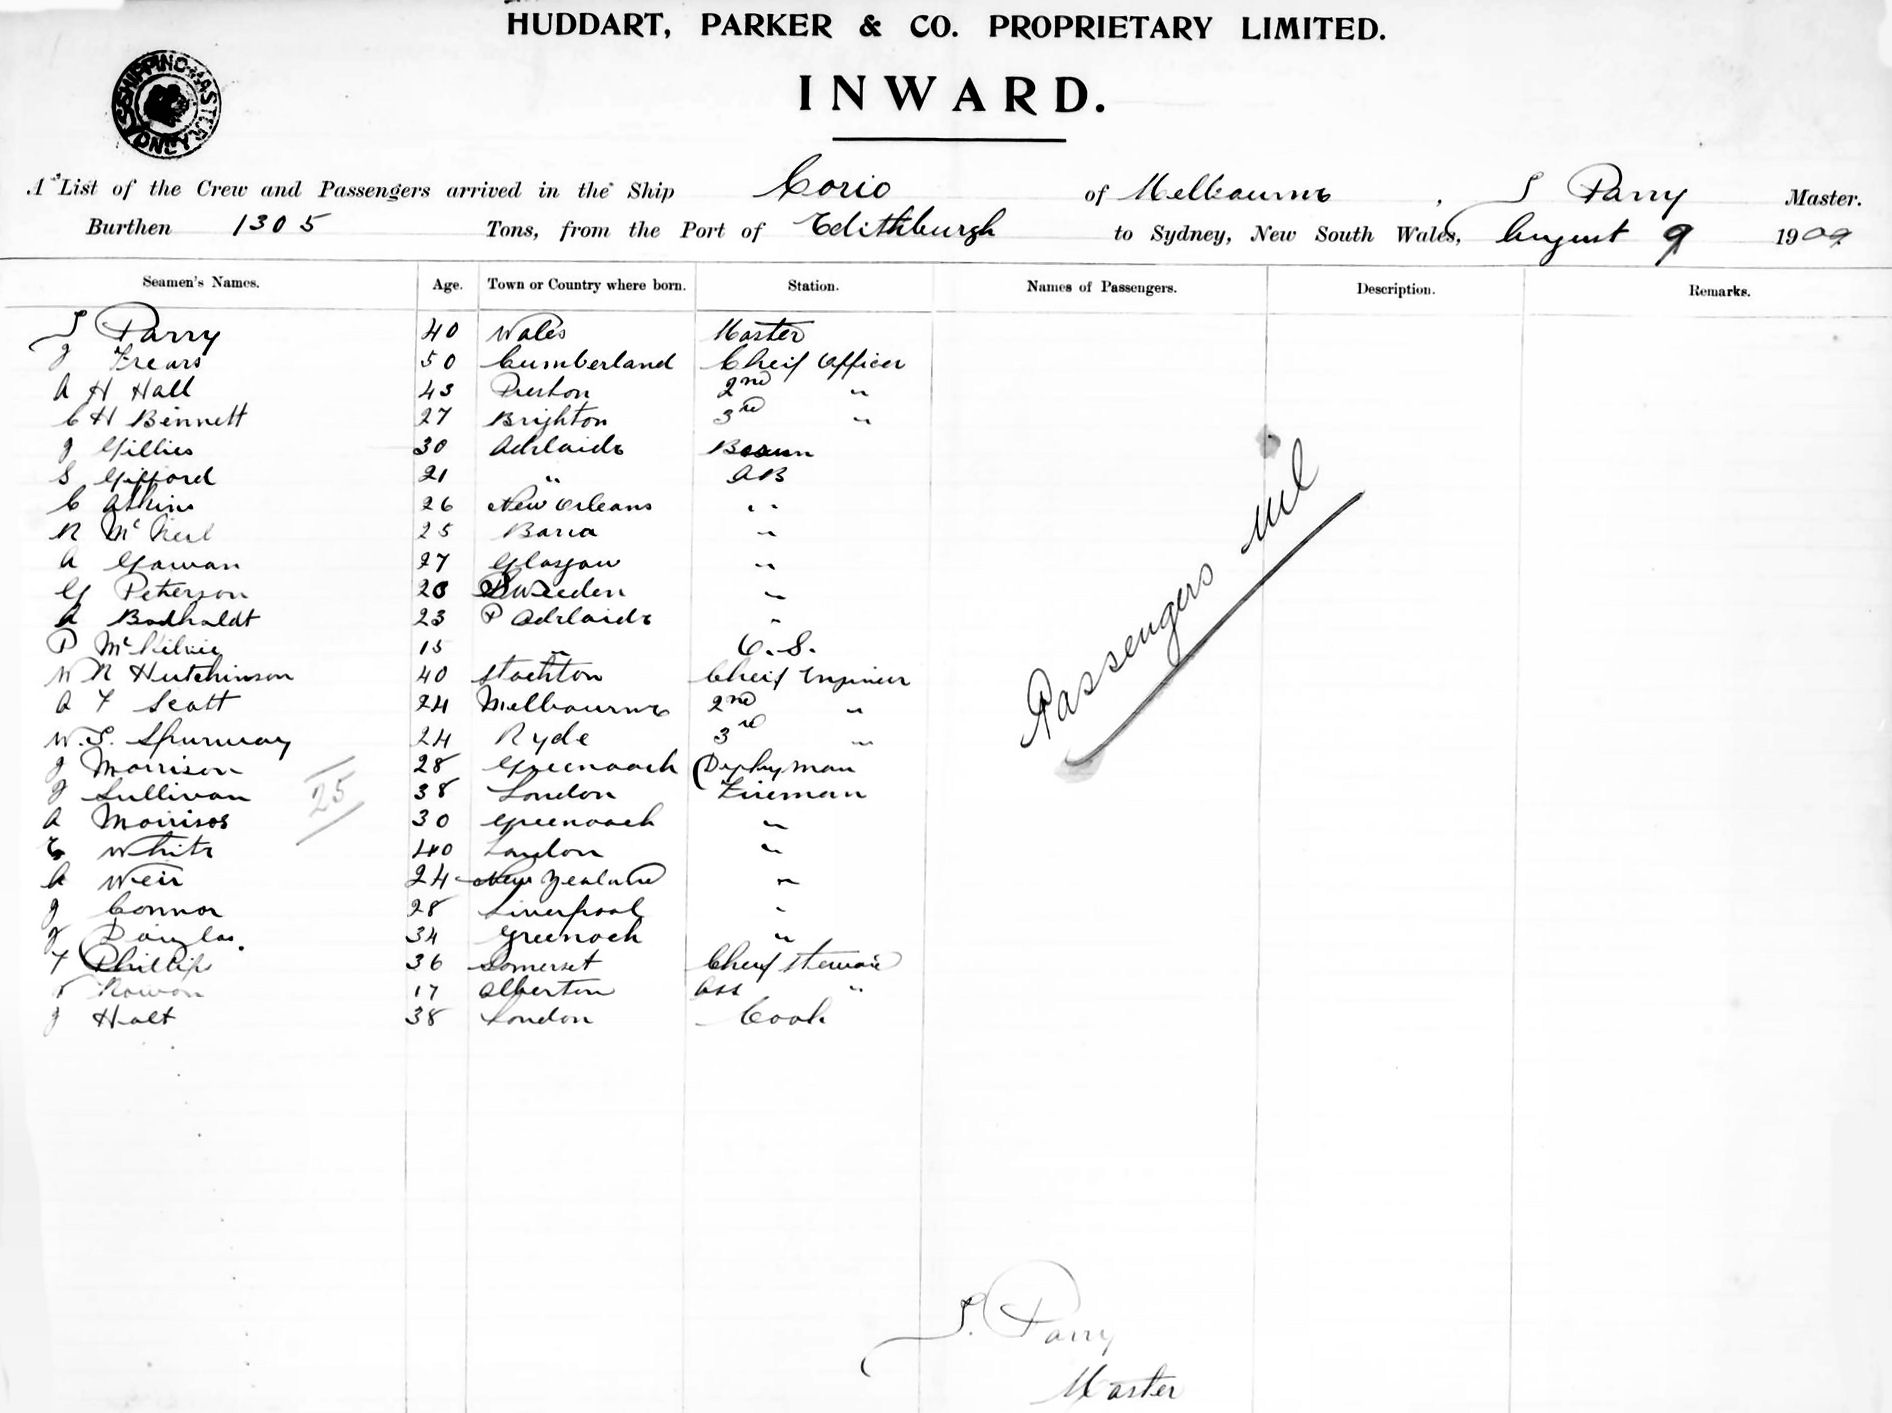 HUDDART, PARKER & CO. PROPRIETARY LIMITED.
INWARD.
SHIPPING MASTER SYDNEY
A List of the Crew and Passengers arrived in the Ship Corio of Melbourne, S Parry Master.
Burthen 1305 Tons, from the Port of Edithburgh to Sydney, New South Wales, August 9 1909
Seamen's Names. Age. Town or Country where born. Station. Names of Passengers. Description. Remarks.
S Parry 40 Wales Master
J Frears 50 Cumberland Cheif Officer
A H Hall 43 Preston 2nd "
C H Bennett 27 Brighton 3rd "
J Gillies 30 Adelaide Bosun
S Gifford 21 " AB
C Askins 26 New Orleans "
R McNeil 25 Barra "
A Gowan 27 Glasgow "
G Peterson 28 Sweeden "
A Badhaldt 23 P Adelaide "
P 15 " O.S.
W R Hutchinson 40 Stockton Cheif Engineer
A F Scott 24 Melbourne 2nd "
W.S. Spurway 24 Ryde 3rd "
J Morrison 28 Greenock
J Sullivan 38 London Fireman
25
A Morrison 30 Greenock "
E White 40 London "
A Weir 24 New Zealand "
J Connor 28 Liverpool "
J Douglas. 34 Greenock "
F Phillips 36 Somerset Cheif Steward
Rowan 17 Alberton Ass "
J Holt 38 London Cook
Passengers Nil
S. Parry
Master